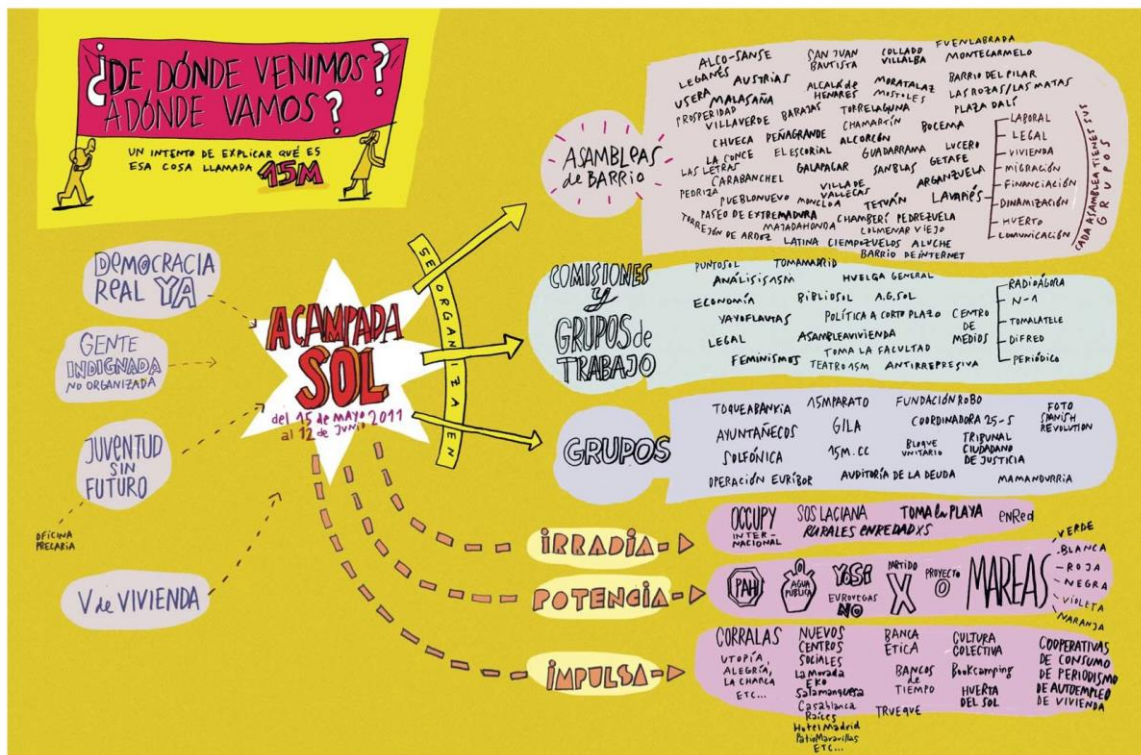 ¿DE DÓNDE VENIMOS?
A DÓNDE VAMOS?
UN INTENTO DE EXPLICAR QUÉ ES
ESA COSA LLAMADA 15M
DEMOCRACIA
REAL YA
GENTE
INDIGNADA
NO ORGANIZADA
JUVENTUD
SIN
FUTURO
OFICINA
PRECARIA
V de VIVIENDA
ACAMPADA
SOL
del 15 de MAYO 2011
al 12 de JUNIO
SE ORGANIZA EN
ASAMBLEAS
de BARRIO
ALCO-SANSE
SAN JUAN
BAUTISTA
COLLADO
VILLALBA
FUENLABRADA
MONTECARMELO
LEGANÉS
AUSTRIAS
ALCALÁ de
HENARES
MORATALAZ
BARRIO DEL PILAR
USERA
MALASAÑA
MOSTOLES
LAS ROZAS/LAS MATAS
PROSPERIDAD
VILLAVERDE
BARAJAS
TORRELAGUNA
PLAZA DALÍ
CHAMARTÍN
CHUECA
PEÑAGRANDE
ALCORCÓN
BOCEMA
LA CONCE
EL ESCORIAL
GUADARRAMA
LUCERO
LAS LETRAS
CARABANCHEL
GALAPAGAR
SANBLAS
GETAFE
PEDRIZA
PUEBLONUEVO
MONCLOA
VILLA DE
VALLECAS
ARGANZUELA
TETUÁN
LAVAPIÉS
PASEO DE EXTREMADURA
CHAMBERÍ
PEDREZUELA
TORREJÓN DE ARDOZ
MAJADAHONDA
COLMENAR VIEJO
LATINA
CIEMPOZUELOS
ALUCHE
BARRIO DE INTERNET
LABORAL
LEGAL
VIVIENDA
MIGRACIÓN
FINANCIACIÓN
DINAMIZACIÓN
HUERTO
COMUNICACIÓN
CADA ASAMBLEA TIENE SUS
GRUPOS
COMISIONES
Y
GRUPOS de
TRABAJO
PUNTOSOL
TOMAMADRID
ANÁLISIS15M
HUELGA GENERAL
ECONOMÍA
BIBLIOSOL
A.G.SOL
YAYOFLAUTAS
POLÍTICA A CORTO PLAZO
LEGAL
ASAMBLEAVIVIENDA
TOMA LA FACULTAD
FEMINISMOS
TEATRO15M
ANTIRREPRESIVA
CENTRO
DE
MEDIOS
RADIOÁGORA
N-1
TOMALATELE
DIFRED
PERIÓDICO
GRUPOS
TOQUEABANKIA
15MPARATO
FUNDACIÓN ROBO
AYUNTAÑECOS
GILA
COORDINADORA 25-S
FOTO
SPANISH
REVOLUTION
SOLFÓNICA
15M.CC
BLOQUE
UNITARIO
TRIBUNAL
CIUDADANO
DE JUSTICIA
OPERACIÓN EURÍBOR
AUDITORÍA DE LA DEUDA
MAMANDURRIA
IRRADIA
OCCUPY
INTER-
NACIONAL
SOS LACIANA
TOMA la PLAYA
enRed
RURALES ENREDADXS
POTENCIA
PAH
AGUA
PÚBLICA
YOSÍ
EUROVEGAS
NO
PARTIDO
X
PROYECTO
O
MAREAS
VERDE
BLANCA
ROJA
NEGRA
VIOLETA
NARANJA
IMPULSA
CORRALAS
UTOPÍA,
ALEGRÍA,
LA CHARCA
ETC...
NUEVOS
CENTROS
SOCIALES
La Morada
EKO
Salamanquesa
Casablanca
Raíces
Hotel Madrid
Patio Maravillas
ETC...
BANCA
ÉTICA
BANCOS
de
TIEMPO
TRUEQUE
CULTURA
COLECTIVA
Bookcamping
HUERTA
DEL SOL
COOPERATIVAS
DE CONSUMO
DE PERIODISMO
DE AUTOEMPLEO
DE VIVIENDA